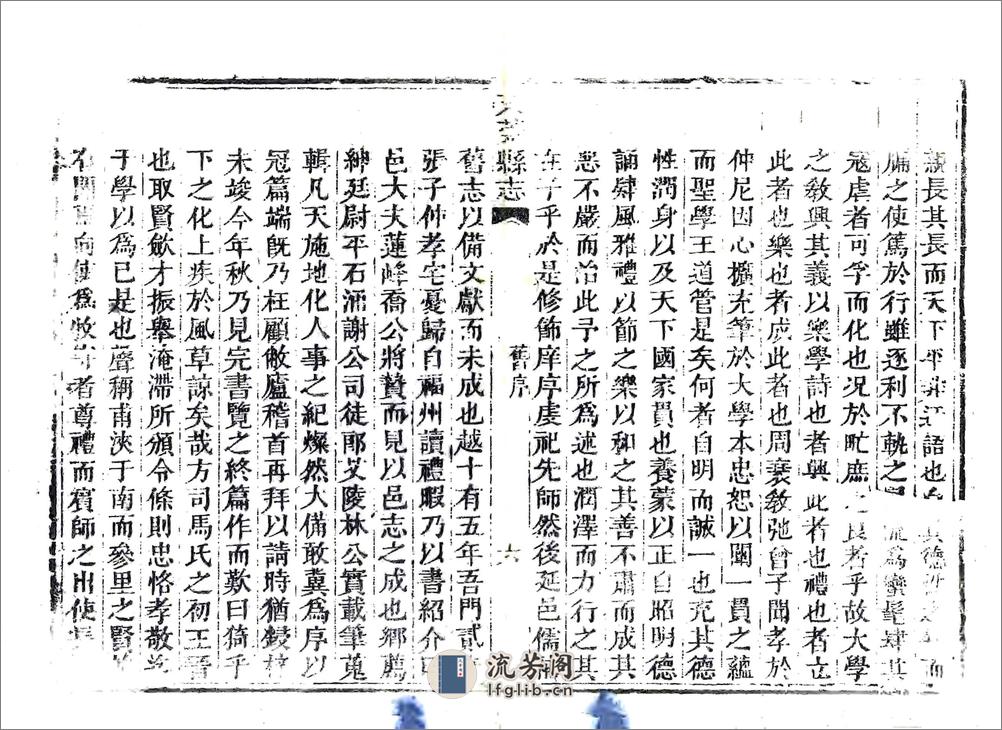 親長其長而天下平非迂語也
牖之使篤於行雖逐利不軌之流爲蠻髦肆其
寇虐者可孚而化也况於甿庶良者乎故大學
之教興其義以樂學詩也者興此者也禮也者立
此者也樂也者成此者也周衰教弛曾子聞孝於
仲尼因心擴充筆於大學本忠恕以闡一貫之蘊
而聖學王道管是矣何者自明而誠一也充其德
性潤身以及天下國家貫也養蒙以正自昭明德
誦肄風雅禮以節之樂以和之其善不肅而成其
惡不嚴而治此予之所爲述也潤澤而力行之其
在子乎於是修飾庠序虔祀先師然後延邑儒
縣志
舊序
六
舊志以備文獻而未成也越十有五年吾門貳
張子仲孝宅憂歸自福州讀禮暇乃以書紹介
邑大夫蓮峰喬公將贄而見以邑志之成也鄉薦
紳廷尉平石浦謝公司徒郎艾陵林公實載筆蒐
輯凡天施地化人事之紀燦然大備敢冀爲序以
冠篇端旣乃枉顧敝廬稽首再拜以請時猶鋟梓
未竣今年秋乃見完書覽之終篇作而歎曰猗乎
下之化上疾於風草諒矣哉方司馬氏之初王晉
也取賢斂才振舉淹滯所頒令條則忠恪孝敬
于學以爲已是也聲稱甫浹于南而參里之賢
爲牧者尊禮而賓師之出使
流芳阁
lfglib.cn